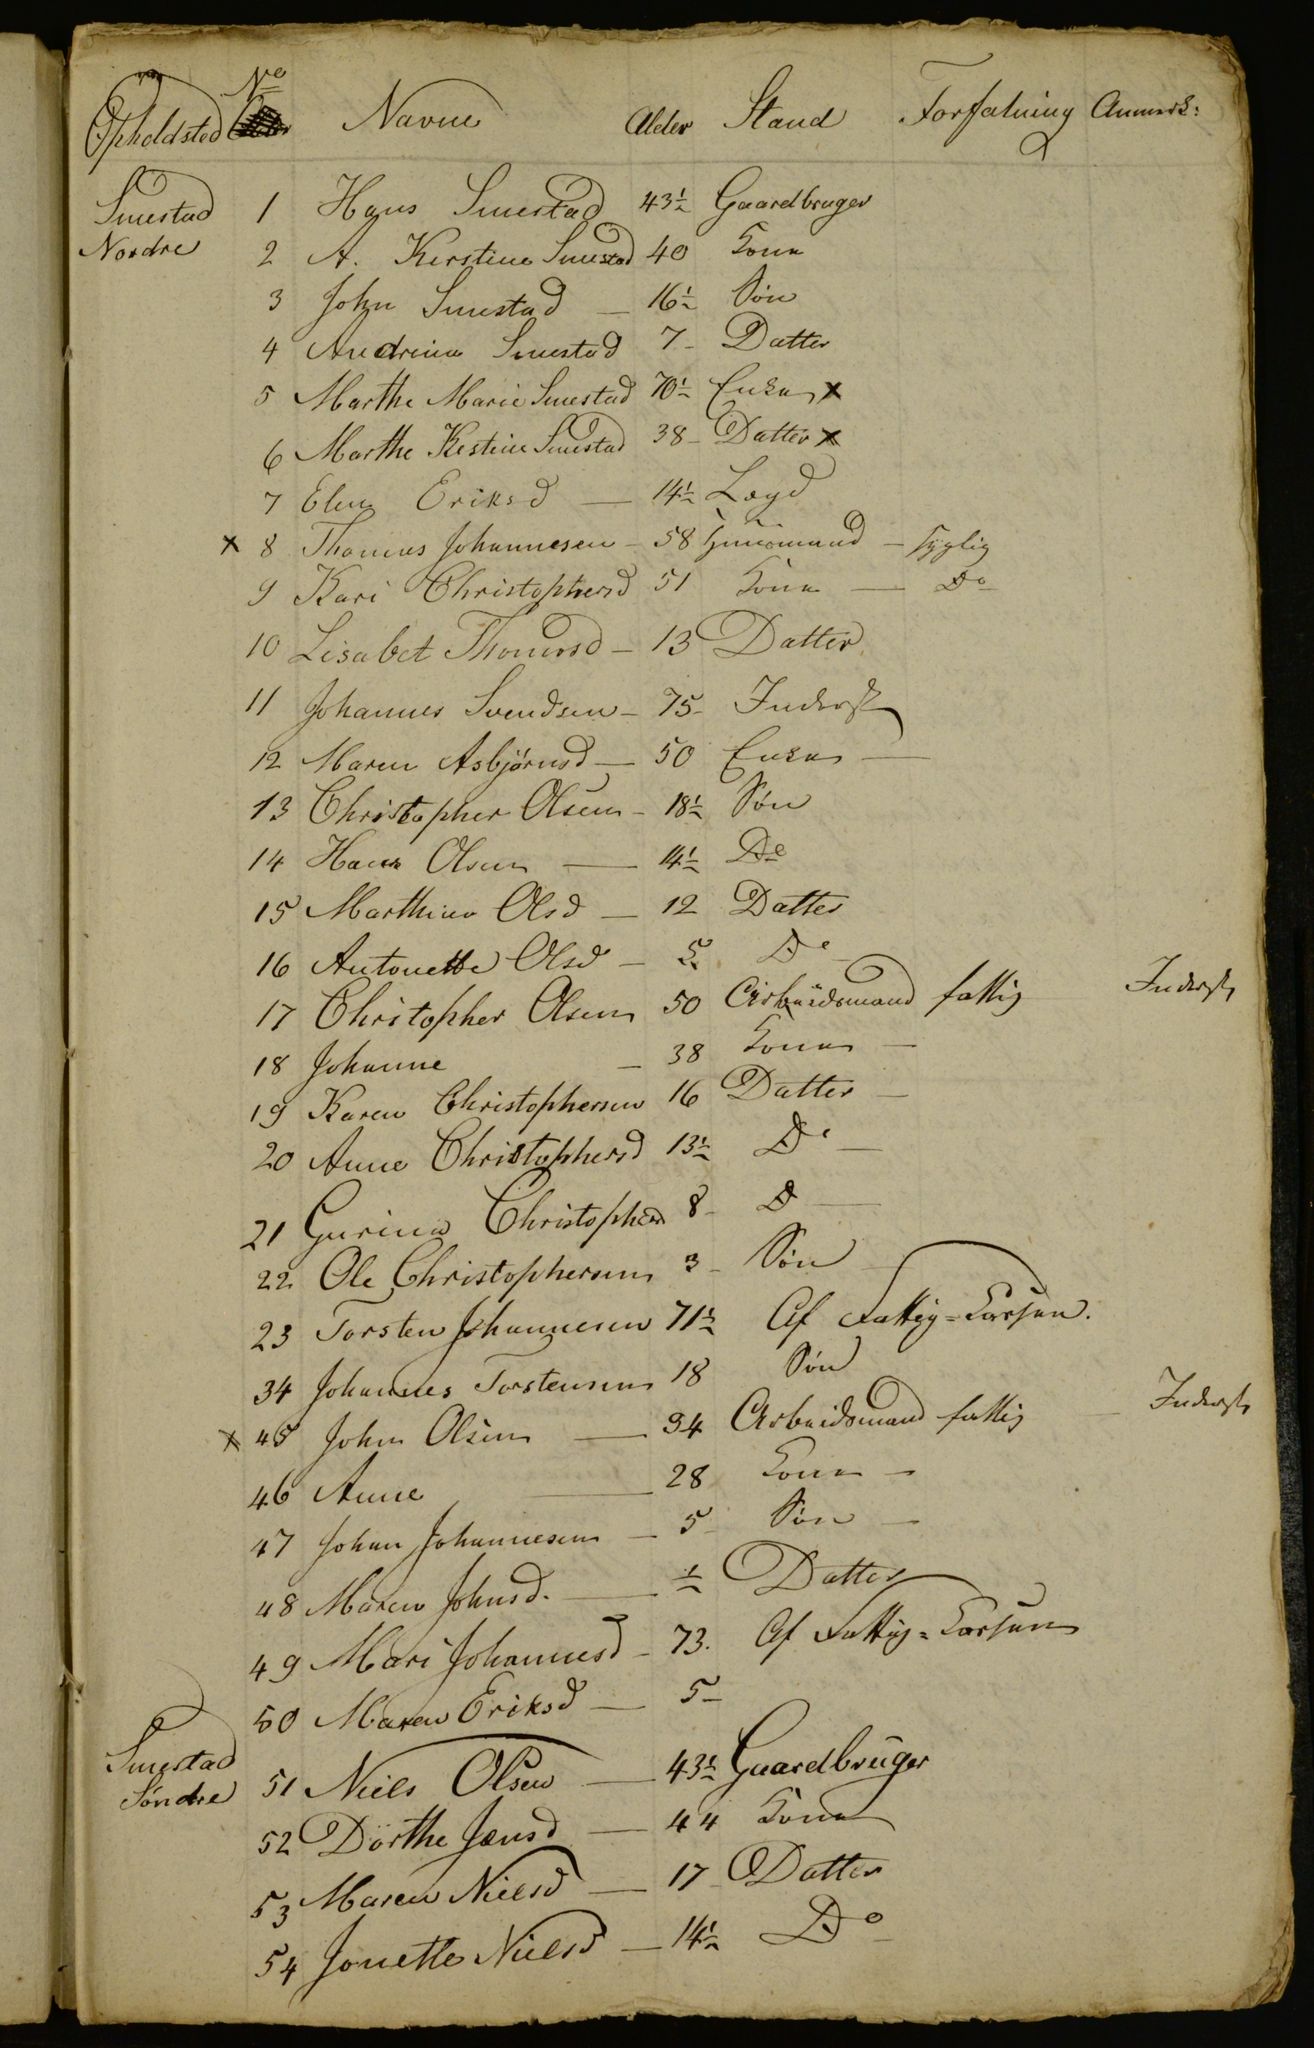 Opholdsted No Navne Alder Stand Forfatning Anmerk:
Smestad 1 Hans Smestad 43½ Gaardbruger
Nordre 2 A. Kerstine Smestad 40 Kone
3 John Smestad — 16½ Søn
4 Andrina Smestad 7 - Datter
5 Marthe Marie Smestad 70½ Enke x
6 Marthe Kestine Smestad 38 - Datter x
7 Elen Eriksd — 14½ Lægd
x 8 Thomas Johannesen - 58 Huusmand - syglig
9 Kari Christophersd 51 Kone — Do
10 Lisabet Thomosd - 13 Datter
11 Johannes Svendsen - 75 - Inderst
12 Maren Asbjørnsd — 50 Enke —
13 Christopher Olsen - 18½ Søn
14 Hans Olsen — 14½ Do
15 Marthine Olsd — 12 Datter
16 Antonette Olsd - 5 Do -
17 Christopher Olsen 50 Arbeidsmand fattig Inderst
18 Johanne - 38 Kone —
19 Karen Christophersen 16 Datter —
20 Anne Christophersd 13½ Do —
21 Gurina Christophersd 8 - D —
22 Ole Christophersen 3 - Søn
23 Torsten Johannesen 71½ Af Fattig-Kassen.
34 Johannes Torstensen 18 Søn
x 45 John Olsen — 34 Arbeidsmand fattig — Inderst
46 Anne — 28 Kone —
47 Johan Johannesen — 5 - Søn —
48 Maren Johnsd. — ½ Datter
49 Mari Johannesd - 73. Af Fattig-Kassen
50 Maren Eriksd — 5 -
Smestad
Søndre 51 Niels Olsen — 43½ Gaardbruger
52 Dorthe Jensd — 44 Kone
53 Maren Nielsd — 17 - Datter
54 Jonette Nielsd — 14½ Do -